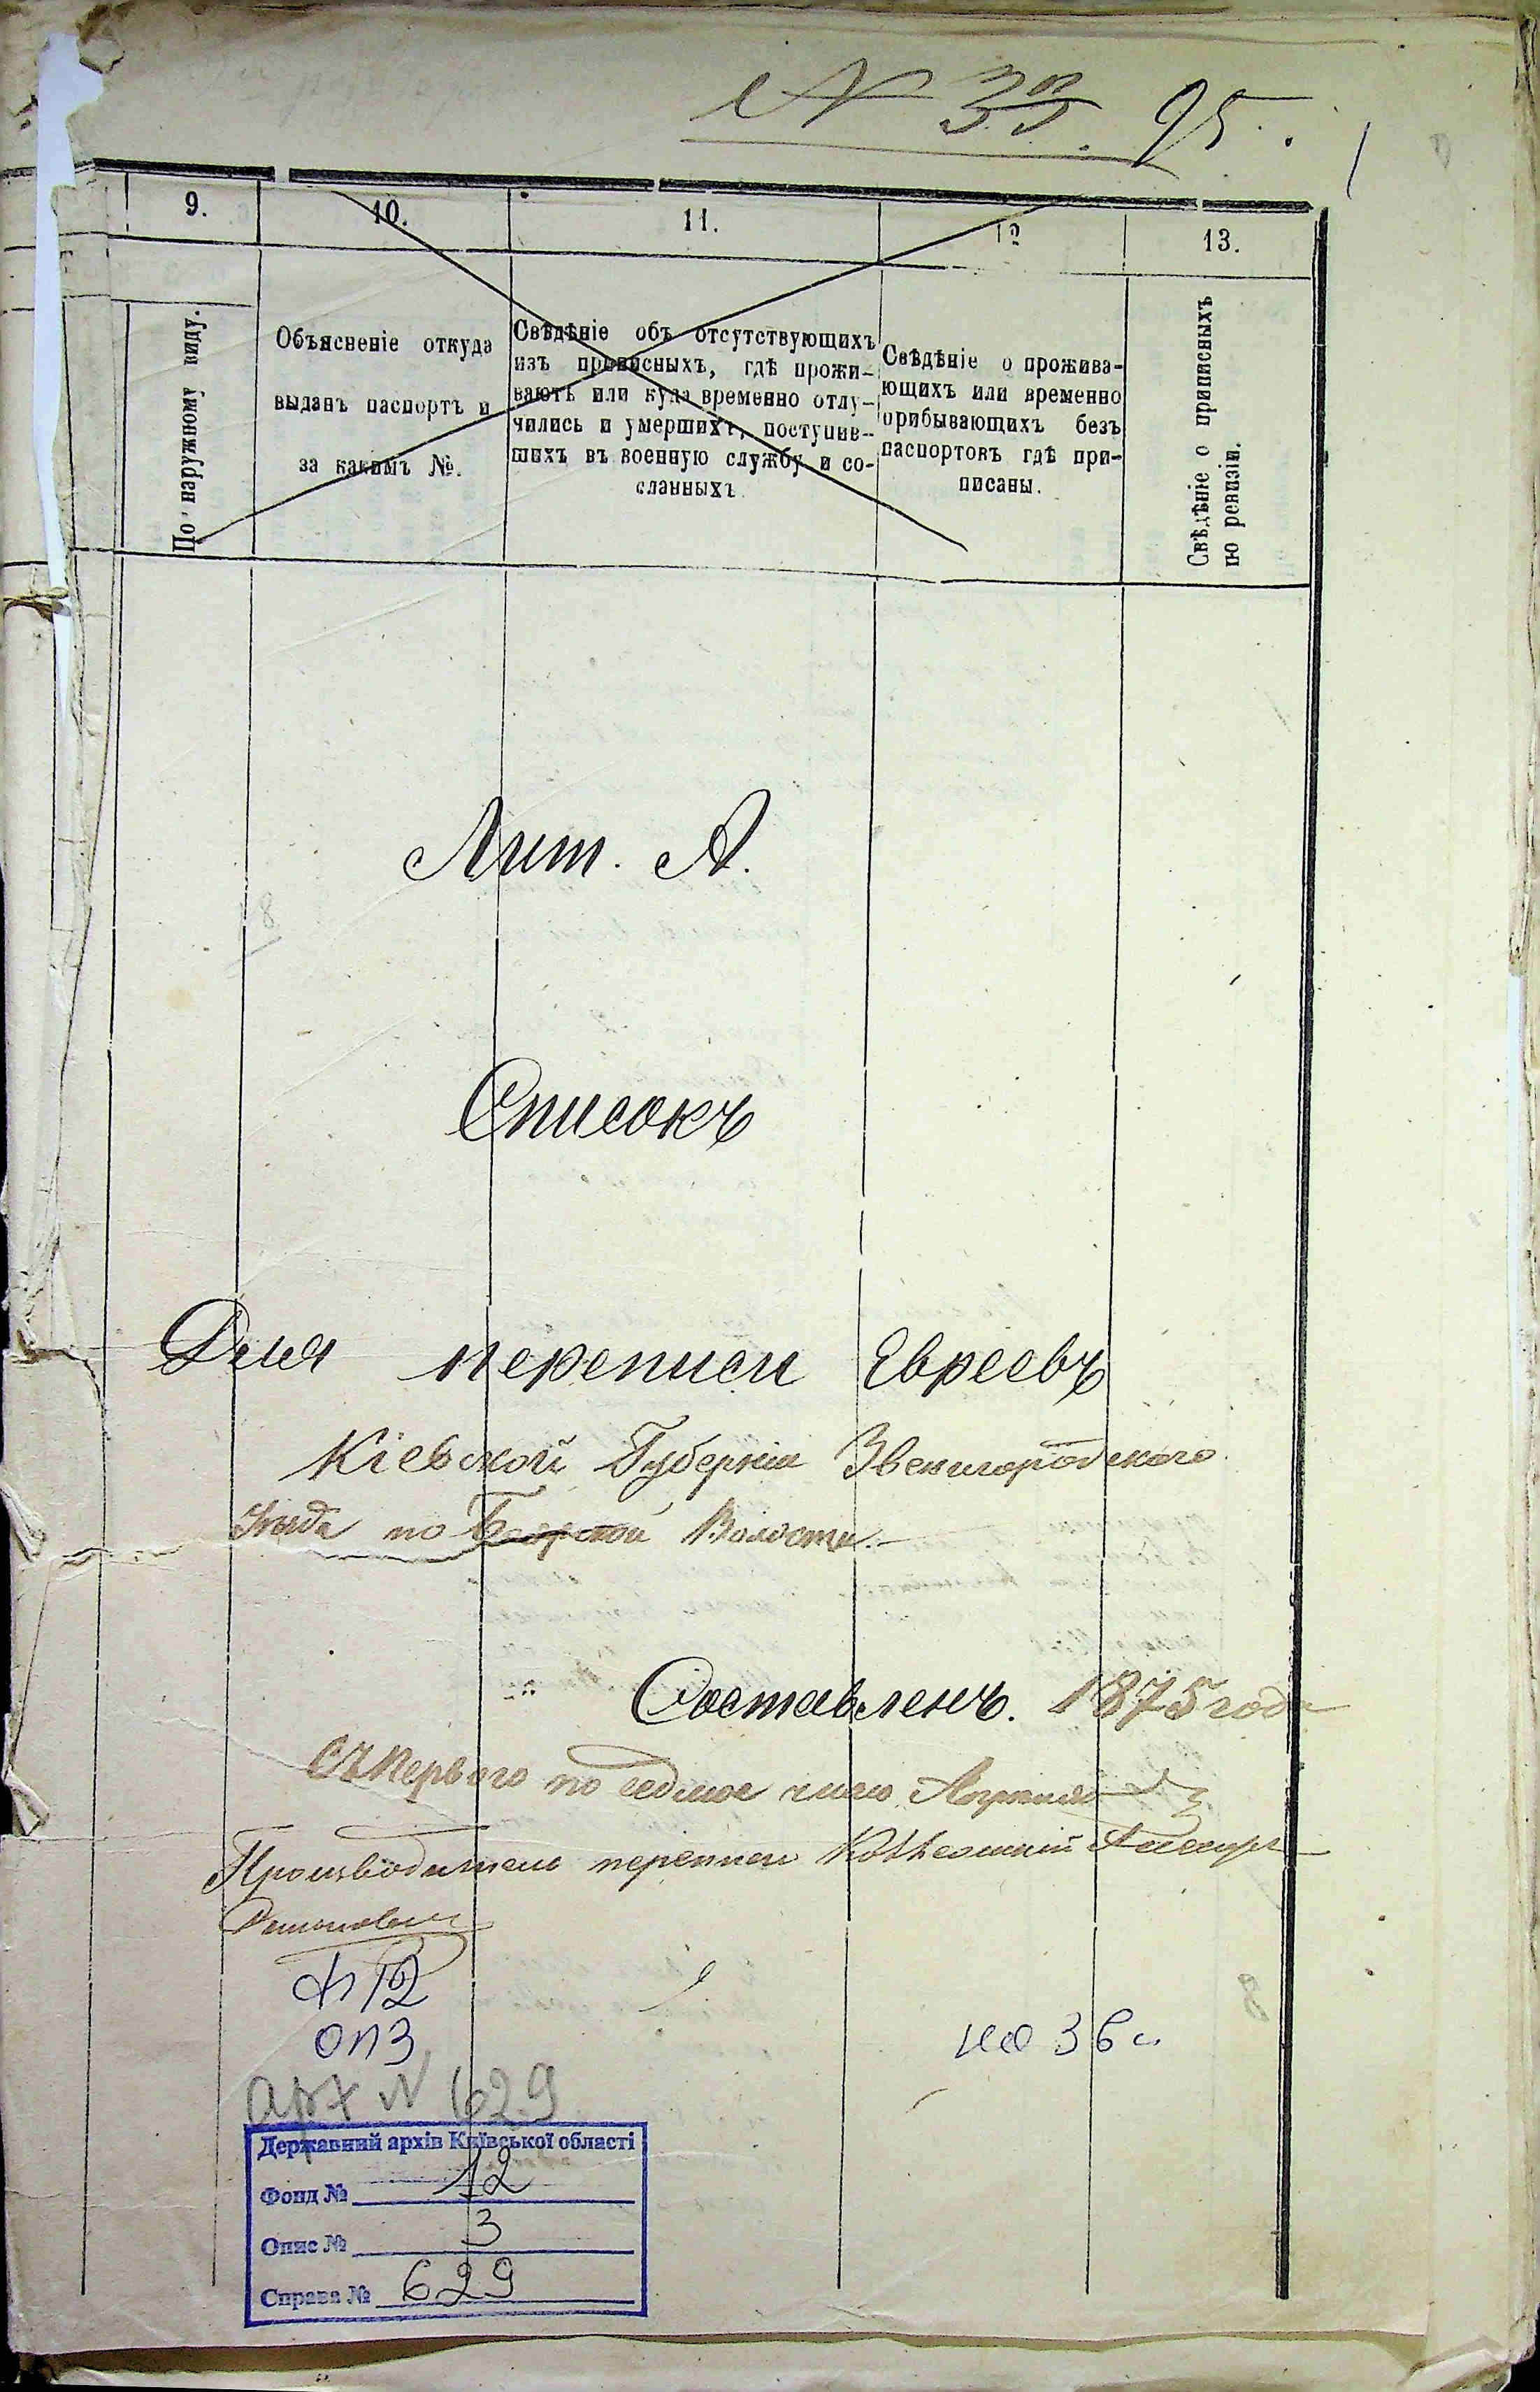 № 95.
9.
10.
11.
12
13.
По наружному виду.
Объясненіе откуда
выданъ паспортъ и
за какимъ №.
Свѣдѣніе объ отсутствующихъ
изъ прописныхъ, гдѣ прожи-
ваютъ или куда временно отлу-
чились и умершихъ, поступив-
шихъ въ военную службу и со-
сланныхъ
Свѣдѣніе о прожива-
ющихъ или временно
прибывающихъ безъ
паспортовъ гдѣ при-
писаны.
Свѣдѣніе о приписныхъ
по ревизіи.
Лит. А.
Списокъ
Для переписи Евреевъ
Кіевской Губерніи Звенигородскаго
Уѣзда по Боярской Волости.
Составленъ. 1875 года
Съ Перваго по седмое число Апреля
Производитель переписи
Ф 12
оп 3
на 36 л.
арх N 629
Державний архів Київської області
Фонд № 12
Опис № 3
Справа № 629